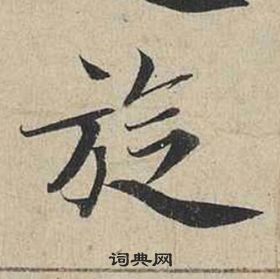 旋
词典网